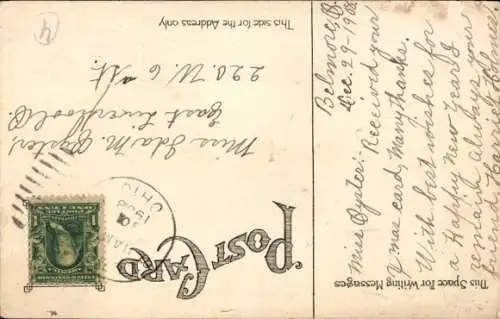 This Space For Writing Messages
Belmore, O.
Dec. 29-1908
Miss Oyster:
Received your
Xmas card, many thanks.
With best wishes for
a Happy New Year I
remain always your
POST CARD
This side for the Address only
Miss Ida M. Oyster
East Liverpool O.
220. W. 6 St.
JAN
1909
OHIO
4